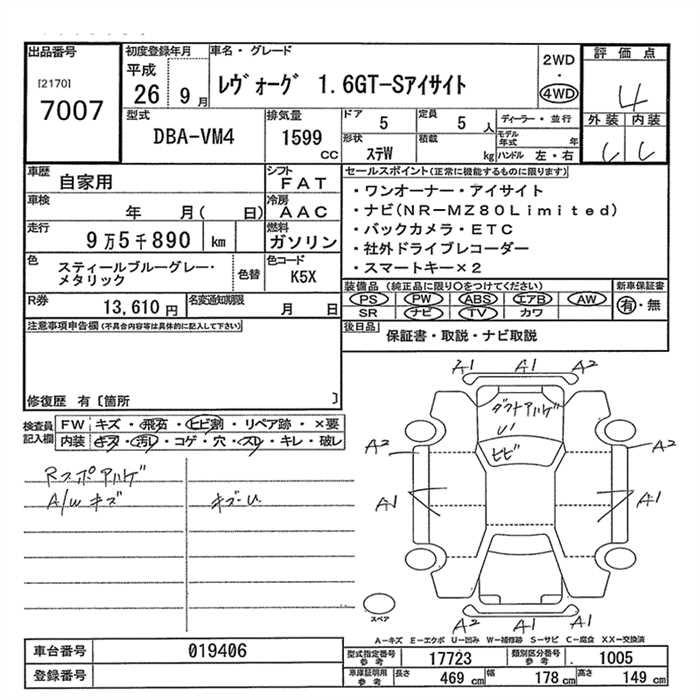 出品番号
[2170]
7007
初度登録年月
平成
26 9 月
車名・グレード
ﾚｳﾞｫｰｸﾞ 1.6GT-Sアイサイト
2WD
・
4WD
評価点
4
外装 内装
型式
DBA-VM4
排気量
1599
cc
ドア
5
定員
5 人
形状
ｽﾃW
積載
kg
ディーラー・並行
モデル年式
年
ハンドル 左・右
車歴
自家用
シフト
FAT
車検
年 月( 日)
冷房
AAC
走行
9万5千890 km
燃料
ガソリン
色
スティールブルーグレー・
メタリック
色替
色コード
K5X
R券
13,610 円
名変通知期限
月 日
セールスポイント(正常に機能するものに限ります)
・ワンオーナー・アイサイト
・ナビ(NR-MZ80Limited)
・バックカメラ・ETC
・社外ドライブレコーダー
・スマートキー×2
装備品(純正品に限り○をつけてください)
PS PW ABS エアB AW
SR ナビ TV カワ
新車保証書
有・無
後日品
保証書・取説・ナビ取説
注意事項申告欄(不具合内容等は具体的に記入して下さい)
修復歴 有〔箇所 〕
検査員
記入欄
FW キズ・飛石・ヒビ割・リペア跡・×要
内装 キズ・汚レ・コゲ・穴・スレ・キレ・破レ
Rスポアハゲ
A/W キズ
キズ・U
A1 A1 A2
ダクトアハゲ
U1
ヒビ
A2 A2
A1 A1
A1 A1 A2
スペア
A-キズ E-エクボ U-凹み W-補修跡 S-サビ C-腐食 XX-交換済
車台番号 019406
登録番号
型式指定番号
参考
17723
類別区分番号
参考
1005
車庫証明用
参考
長さ 469 cm 幅 178 cm 高さ 149 cm